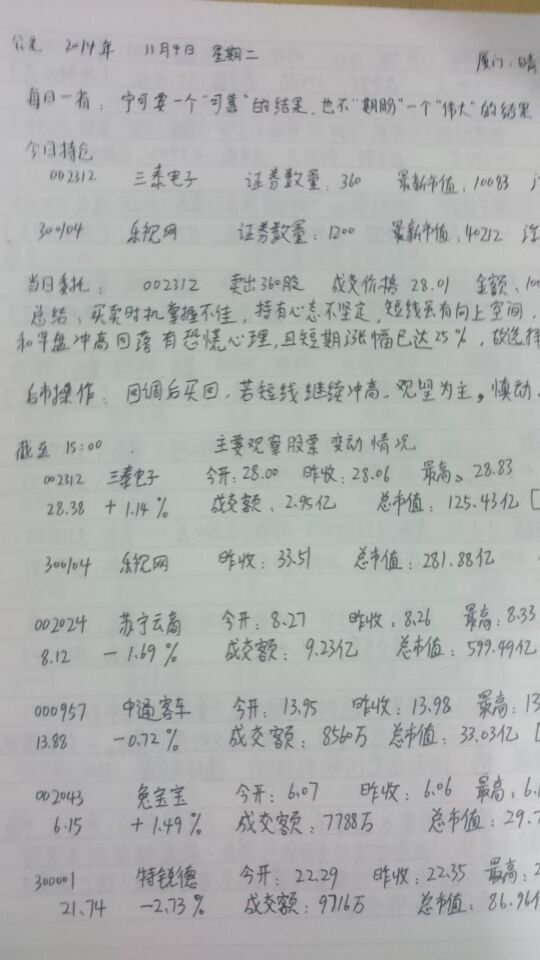 公元 2014年 11月4日 星期二 厦门:晴
每日一省: 宁可要一个"可靠"的结果,也不"期盼"一个"伟大"的结果
今日持仓
002312 三泰电子 证券数量: 360 最新市值: 10083
300104 乐视网 证券数量: 1200 最新市值: 40212
当日委托: 002312 卖出360股 成交价格 28.01 金额:
总结: 买卖时机掌握不佳,持有心态不坚定,短线虽有向上空间,
和早盘冲高回落有恐慌心理,且短期涨幅已达25%,故选择
后市操作: 回调后买回,若短线继续冲高,观望为主,慎动.
截至 15:00 . 主要观察股票变动情况
002312 三泰电子 今开: 28.00 昨收: 28.06 最高: 28.83
28.38 +1.14% 成交额: 2.95亿 总市值: 125.43亿 [
300104 乐视网 昨收: 33.51 总市值: 281.88亿
002024 苏宁云商 今开: 8.27 昨收: 8.26 最高: 8.33
8.12 -1.69% 成交额: 9.23亿 总市值: 599.49亿
000957 中通客车 今开: 13.95 昨收: 13.98 最高: 13
13.88 -0.72% 成交额: 8560万 总市值: 33.03亿 [
002043 兔宝宝 今开: 6.07 昨收: 6.06 最高: 6.
6.15 +1.49% 成交额: 7788万 总市值: 29.7
300001 特锐德 今开: 22.29 昨收: 22.35 最高: 2
21.74 -2.73% 成交额: 9716万 总市值: 86.96亿